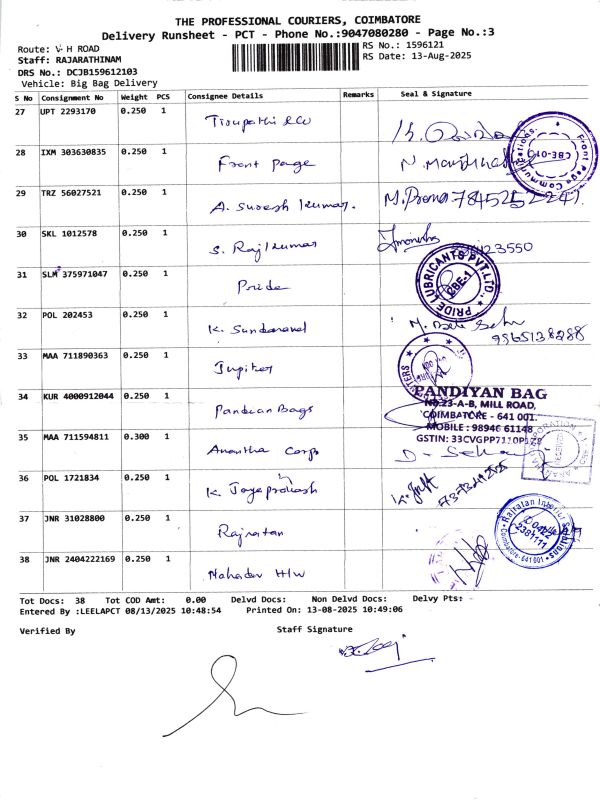 THE PROFESSIONAL COURIERS, COIMBATORE
Delivery Runsheet - PCT - Phone No.:9047080280 - Page No.:3
Route: V H ROAD
RS No.: 1596121
Staff: RAJARATHINAM
RS Date: 13-Aug-2025
DRS No.: DCJB159612103
Vehicle: Big Bag Delivery
S No Consignment No Weight PCS Consignee Details Remarks Seal & Signature
27 UPT 2293170 0.250 1 Tirupathi
28 IXM 303630835 0.250 1 Front page
Front Page Communications CBE-01
29 TRZ 56027521 0.250 1 A. Suresh kumar.
30 SKL 1012578 0.250 1 S. Rajkumar
31 SLM 375971047 0.250 1 Pride
PRIDE LUBRICANTS PVT.LTD., CBE-1
32 POL 202453 0.250 1 K. Sundaravel
33 MAA 711890363 0.250 1 Jupiter
34 KUR 4000912044 0.250 1 Pandian Bags
PANDIYAN BAG
NO.23-A-B, MILL ROAD,
COIMBATORE - 641 001.
MOBILE : 98946 61148
35 MAA 711594811 0.300 1 Anantha Corpo
36 POL 1721834 0.250 1 K. Jayaprakash
37 JNR 31028800 0.250 1 Rajratan
Rajratan Interior Solutions Coimbatore-641001
38 JNR 2404222169 0.250 1 Mahadev H/W
Tot Docs: 38 Tot COD Amt: 0.00 Delvd Docs: Non Delvd Docs: Delvy Pts:
Entered By :LEELAPCT 08/13/2025 10:48:54 Printed On: 13-08-2025 10:49:06
Verified By Staff Signature